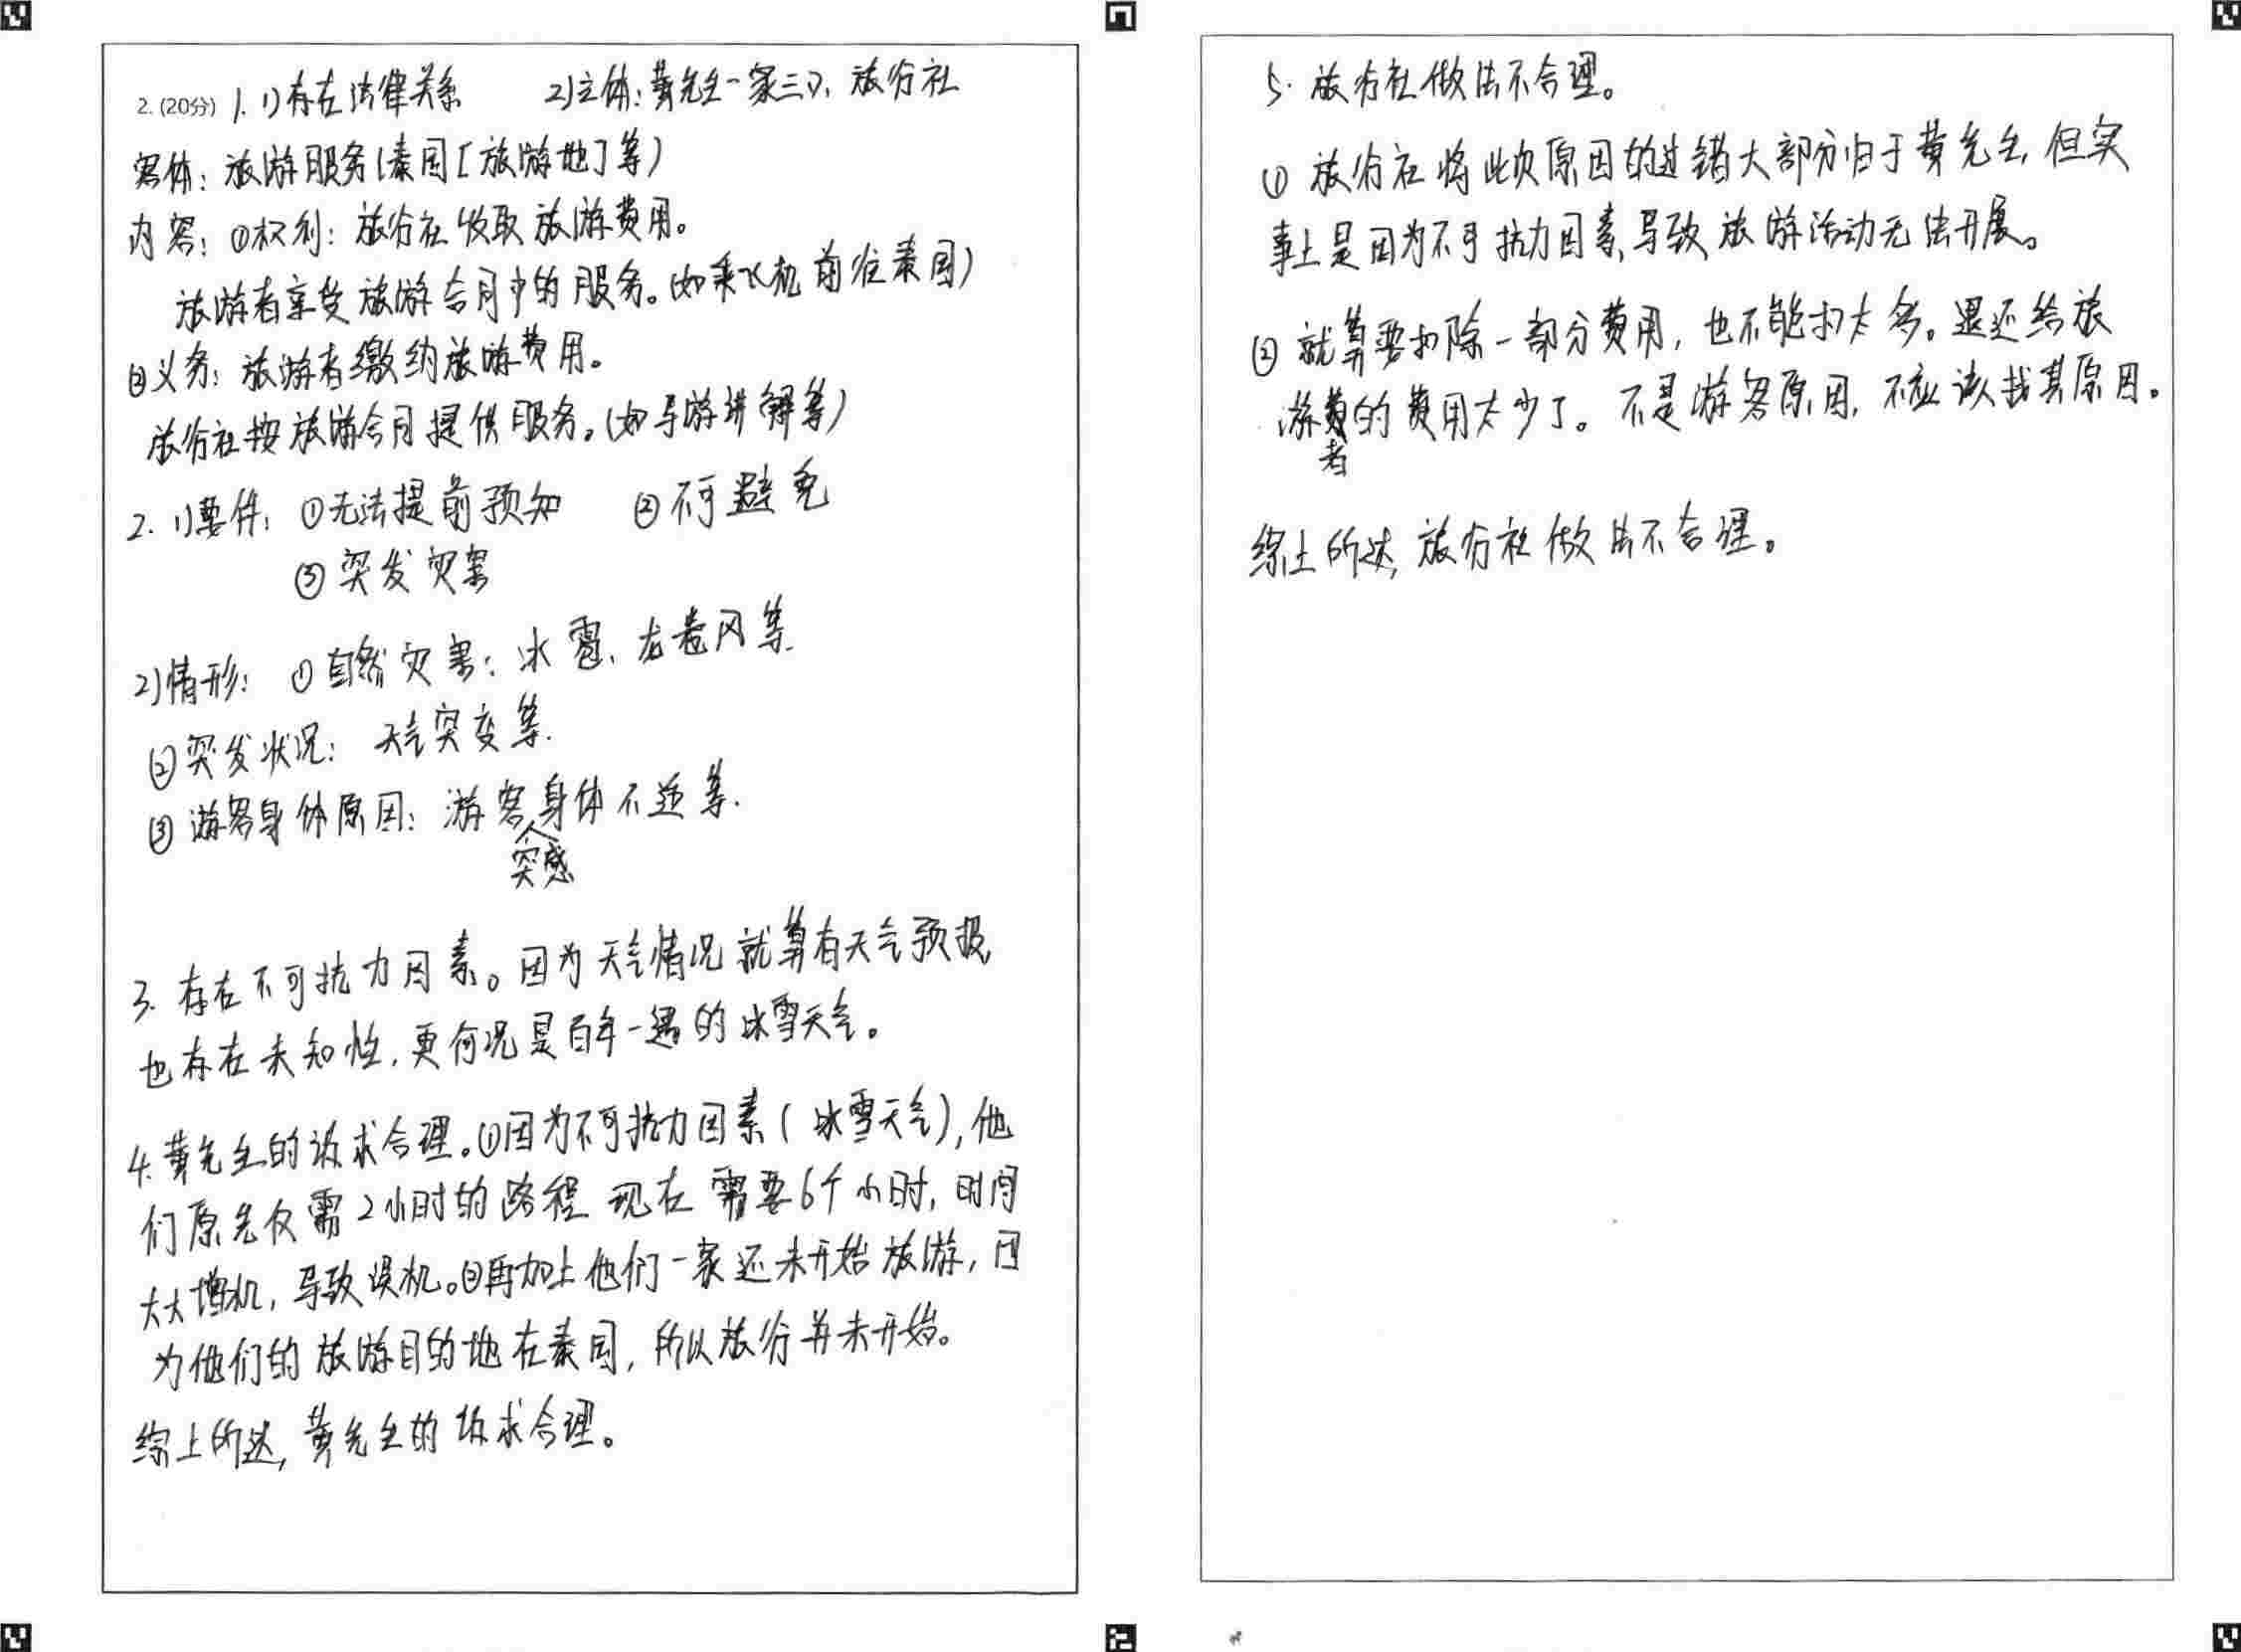 2. (20分) 1. 1)存在法律关系 2)主体:黄先生一家三口、旅行社
客体:旅游服务(泰国[旅游地]等)
内容:①权利:旅行社收取旅游费用。
旅游者享受旅游合同中的服务。(如乘飞机前往泰国)
②义务:旅游者缴纳旅游费用。
旅行社按旅游合同提供服务。(如导游讲解等)
2. 1)要件:①无法提前预知 ②不可避免
③突发灾害
2)情形:①自然灾害:冰雹、龙卷风等.
②突发状况:天气突变等.
③游客身体原因:游客突感身体不适等.
3. 存在不可抗力因素。因为天气情况就算有天气预报,
也存在未知性,更何况是百年一遇的冰雪天气。
4. 黄先生的诉求合理。①因为不可抗力因素(冰雪天气),他
们原先仅需2小时的路程现在需要6个小时,时间
大大增机,导致误机。②再加上他们一家还未开始旅游,因
为他们的旅游目的地在泰国,所以旅行并未开始。
综上所述,黄先生的诉求合理。
5. 旅行社做法不合理。
① 旅行社将此次原因的过错大部分归于黄先生,但实
事上是因为不可抗力因素,导致旅游活动无法开展。
② 就算要扣除一部分费用,也不能扣太多。退还给旅
游者的费用太少了。不是游客原因,不应该找其原因。
综上所述,旅行社做法不合理。